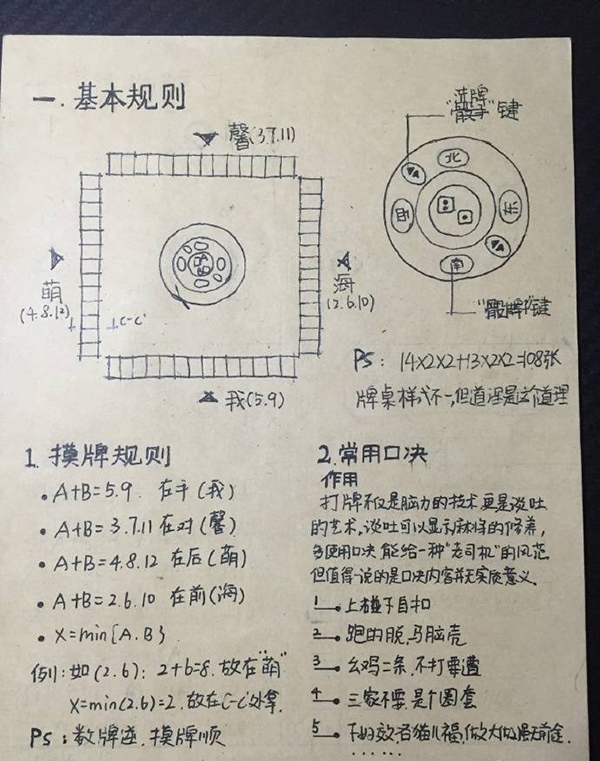 一. 基本规则
馨(3.7.11)
萌
(4.8.12)
C-C'
海
(2.6.10)
我(5.9)
"洗牌"
"骰子"键
北
东
南
西
"骰牌"键
PS: 14×2×2+13×2×2=108张
牌桌样式不一,但道理是这个道理
1. 摸牌规则
• A+B=5.9. 在手(我)
• A+B=3.7.11 在对(馨)
• A+B=4.8.12 在后(萌)
• A+B=2.6.10 在前(海)
• X=min{A.B}
例:如(2.6): 2+6=8. 放在"萌"
X=min(2.6)=2. 放在C-C'处拿.
PS:数牌逆.摸牌顺
2.常用口决
作用
打牌不仅是脑力的技术更是谈吐
的艺术,谈吐可以显示麻将的修养,
多使用口决 能给一种"老司机"的风范
但值得一说的是口决内容并无实质意义.
1. 上碰下自扣
2. 跑的脱,马脑壳
3. 幺鸡二条,不打要遭
4. 三家不要,是个圈套
5. 下
……